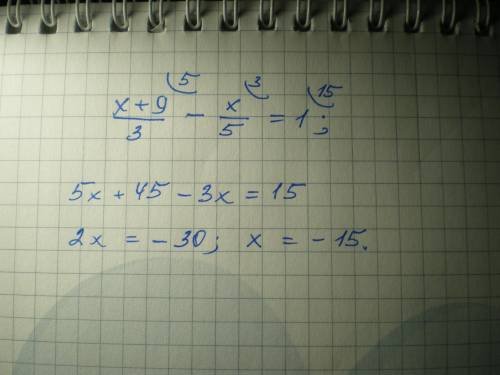 5 3 15
(x+9)/3 - x/5 = 1;
5x + 45 - 3x = 15
2x = - 30; x = - 15.